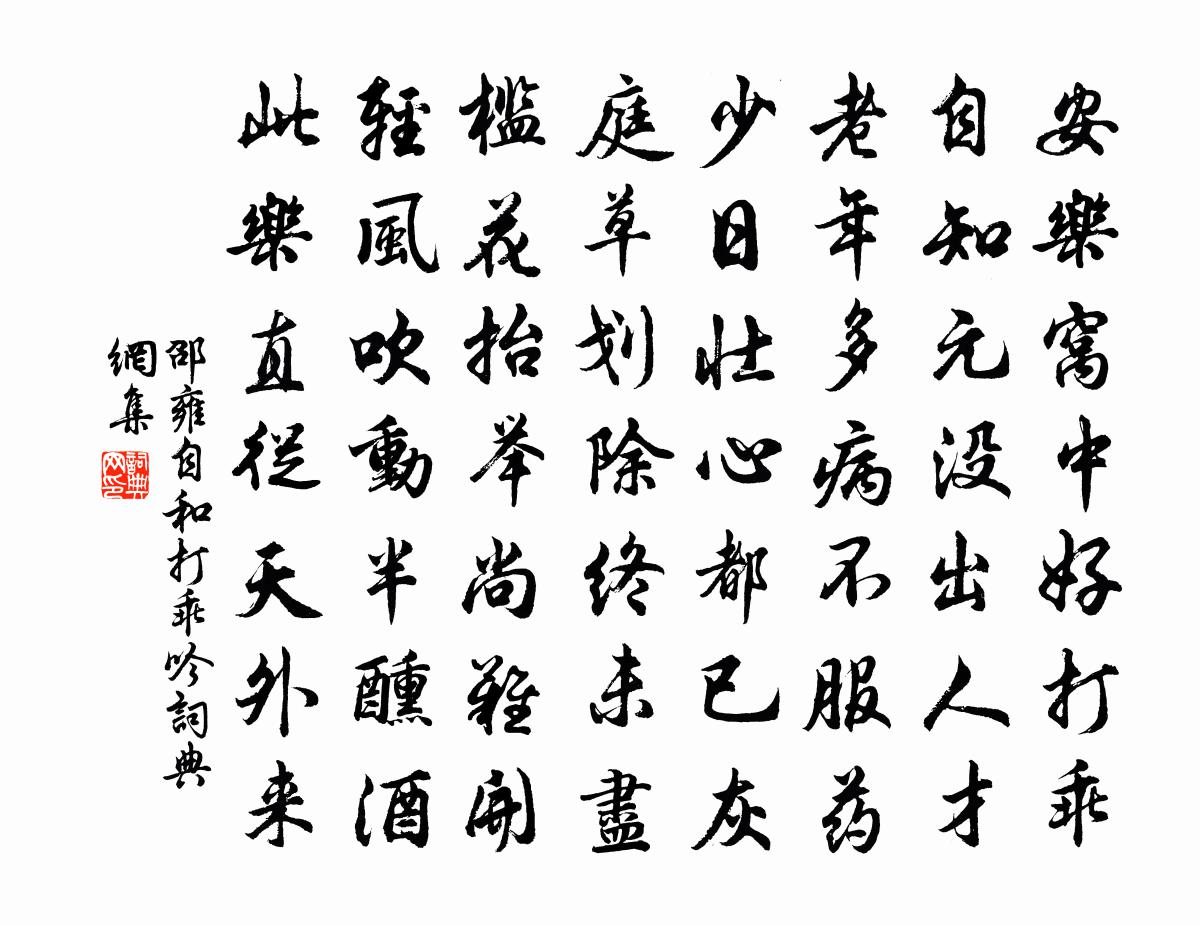 安樂窩中好打乖
自知元没出人才
老年多病不服药
少日壯心都已灰
庭草划除終未盡
檻花抬举尚難開
輕風吹動半醺酒
此樂直從天外来
邵雍自和打乖吟詞典
網集
詞典
网印